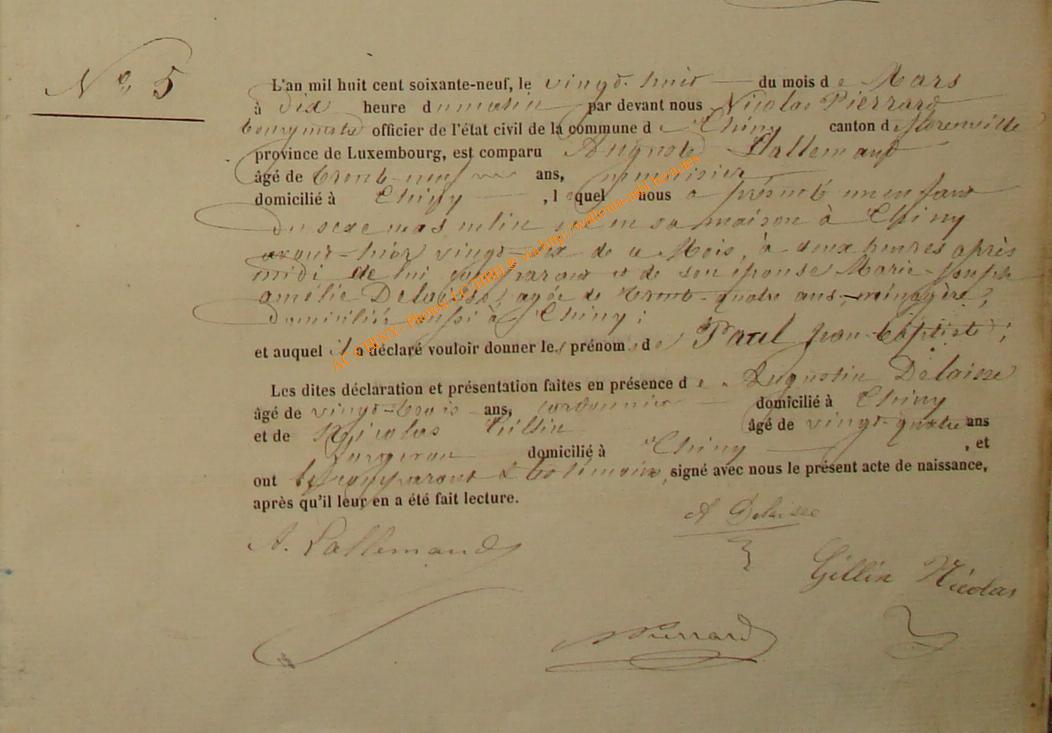 N° 5
L'an mil huit cent soixante-neuf, le vingt-huit du mois de Mars
à dix heure du matin par devant nous Nicolas Pierrard
bourgmestre officier de l'état civil de la commune de Chiny canton de Florenville
province de Luxembourg, est comparu Auguste Lallemand
âgé de trente-neuf ans, menuisier
domicilié à Chiny, lequel nous a présenté un enfant
du sexe masculin né en sa maison à Chiny
avant-hier vingt-six de ce Mois, à deux heures après
midi de lui comparant et de son épouse Marie-Joseph
amélie Delaisse, agée de trente-quatre ans, ménagère,
domiciliée aussi à Chiny;
et auquel il a déclaré vouloir donner les prénoms de Paul Jean-Baptiste;
Les dites déclaration et présentation faites en présence de Augustin Delaisse
âgé de vingt-trois ans, cordonnier domicilié à Chiny
et de Nicolas Gillin âgé de vingt-quatre ans
domicilié à Chiny, et
ont le comparant & les témoins, signé avec nous le présent acte de naissance,
après qu'il leur en a été fait lecture.
A Delaisse
A. Lallemand
Gillin Nicolas
NPierrard